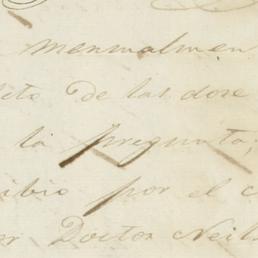 menualmen
lito de las dose
la pregunta,
cibio por el c
or Doctor Neil